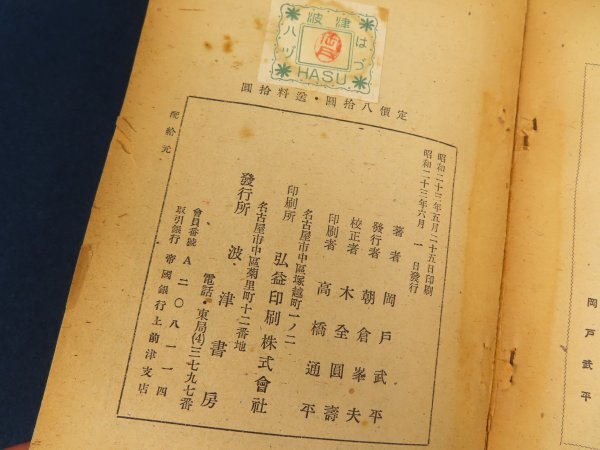 波津
はづ
ハヅ
HASU
定價八拾圓・送料拾圓
昭和二十三年五月二十五日印刷
昭和二十三年六月一日發行
著者 岡戸武平
發行者 朝倉峯夫
校正者 木全圓壽
印刷者 高橋通平
名古屋市中區塚越町一ノ二
印刷所 弘益印刷株式會社
名古屋市中區菊里町十二番地
發行所 波津書房
電話・東局(4)三七九七番
會員番號 A二〇八一一四
取引銀行 帝國銀行上前津支店
配給元
岡戸武平